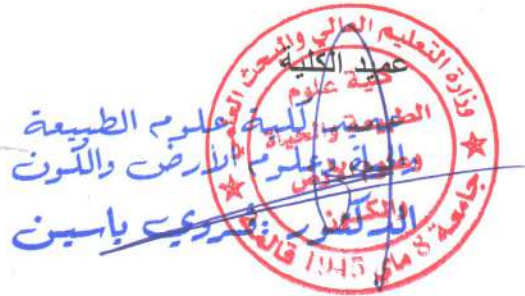 وزارة التعليم العالي والبحث العلمي
عميد الكلية
كلية علوم
الطبيعة والحياة
وعلوم الأرض
والكون
جامعة 8 ماي 1945 قالمة
عميد كلية علوم الطبيعة
والحياة وعلوم الأرض والكون
الدكتور ياسين